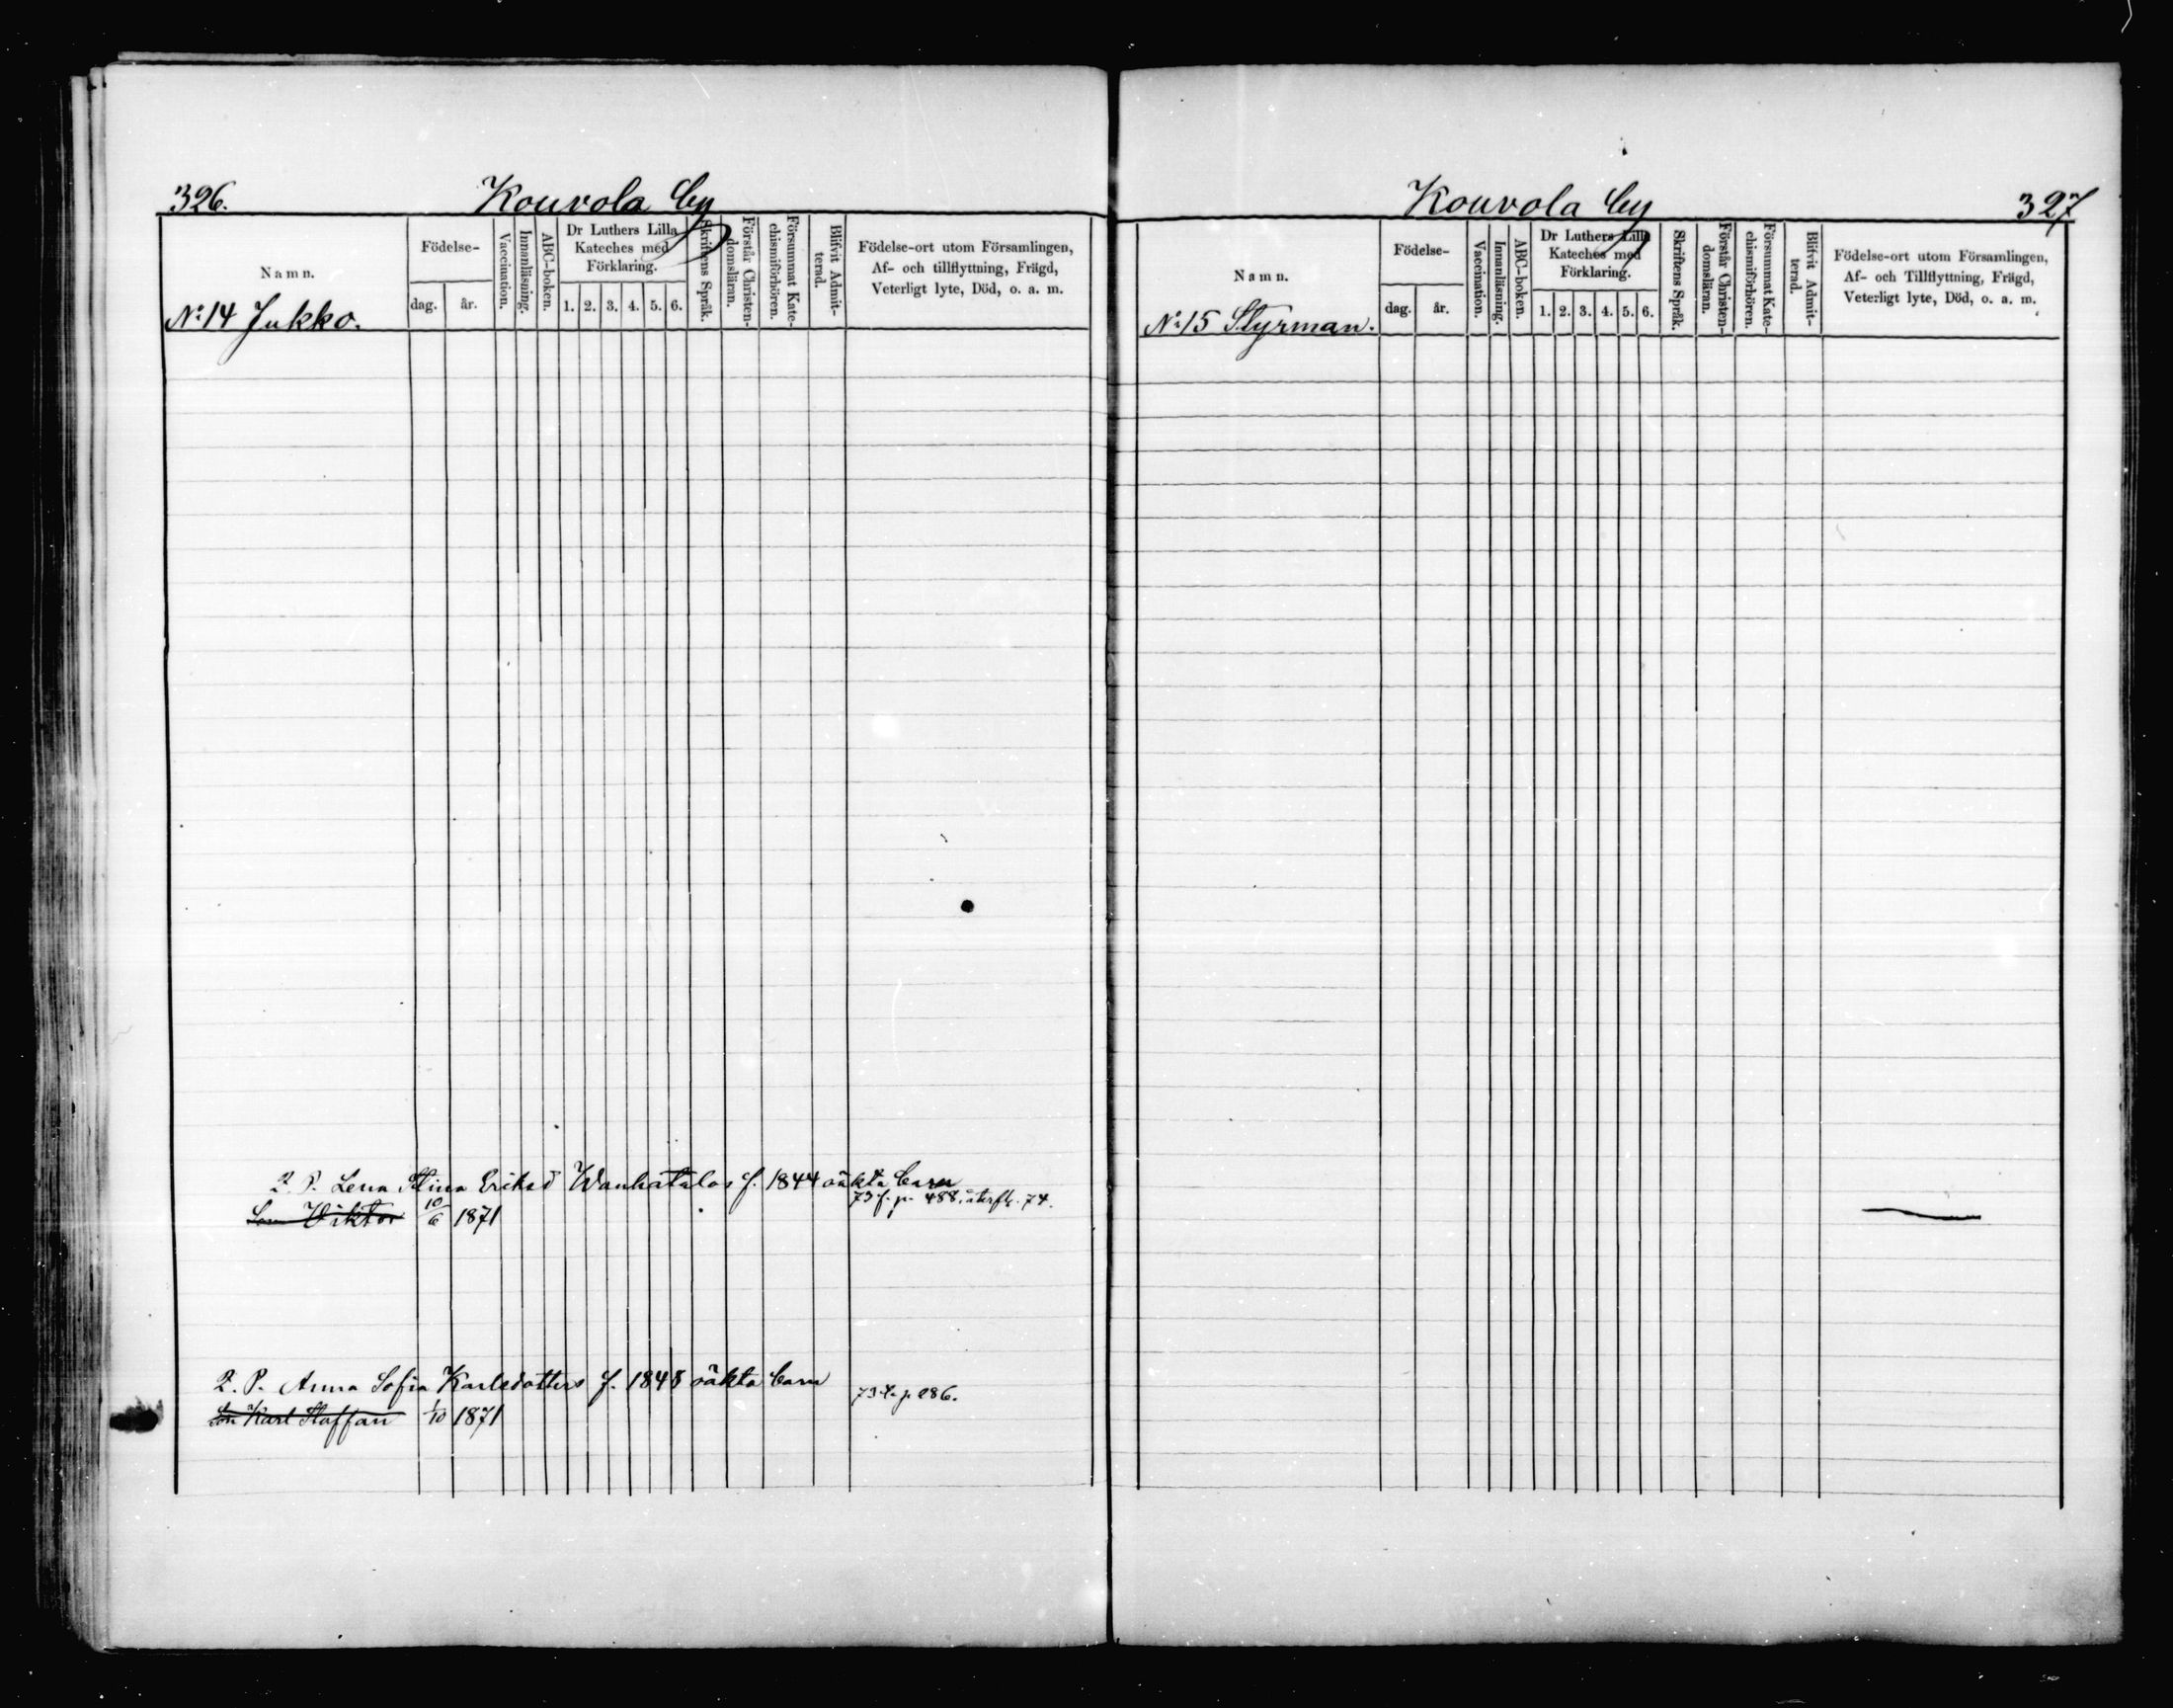 326.
Kouvola by
Namn.
Födelse-
dag.
år.
Vaccination.
Innanläsning.
ABC-boken.
Dr Luthers Lilla
Kateches med
Förklaring.
1. 2. 3. 4. 5. 6.
Skriftens Språk.
Förstår Christen-
domsläran.
Försummat Kate-
chismiförhören.
Blifvit Admit-
terad.
Födelse-ort utom Församlingen,
Af- och tillflyttning, Frägd,
Veterligt lyte, Död, o. a. m.
No 14 Jukko.
2. P. Lena Stina Eriksd Wanhatalos f. 1844 oäkta barn
73 f. p. 488. återfl. 74.
Son Viktor 10/6 1871
2. P. Anna Sofia Karlsdotters f. 1848 oäkta barn
73 f. p 286.
Son Karl Staffan 1/10 1871
Kouvola by
327
Namn.
Födelse-
dag.
år.
Vaccination.
Innanläsning.
ABC-boken.
Dr Luthers Lilla
Kateches med
Förklaring.
1. 2. 3. 4. 5. 6.
Skriftens Språk.
Förstår Christen-
domsläran.
Försummat Kate-
chismiförhören.
Blifvit Admit-
terad.
Födelse-ort utom Församlingen,
Af- och Tillflyttning, Frägd,
Veterligt lyte, Död, o. a. m.
No 15 Styrman.